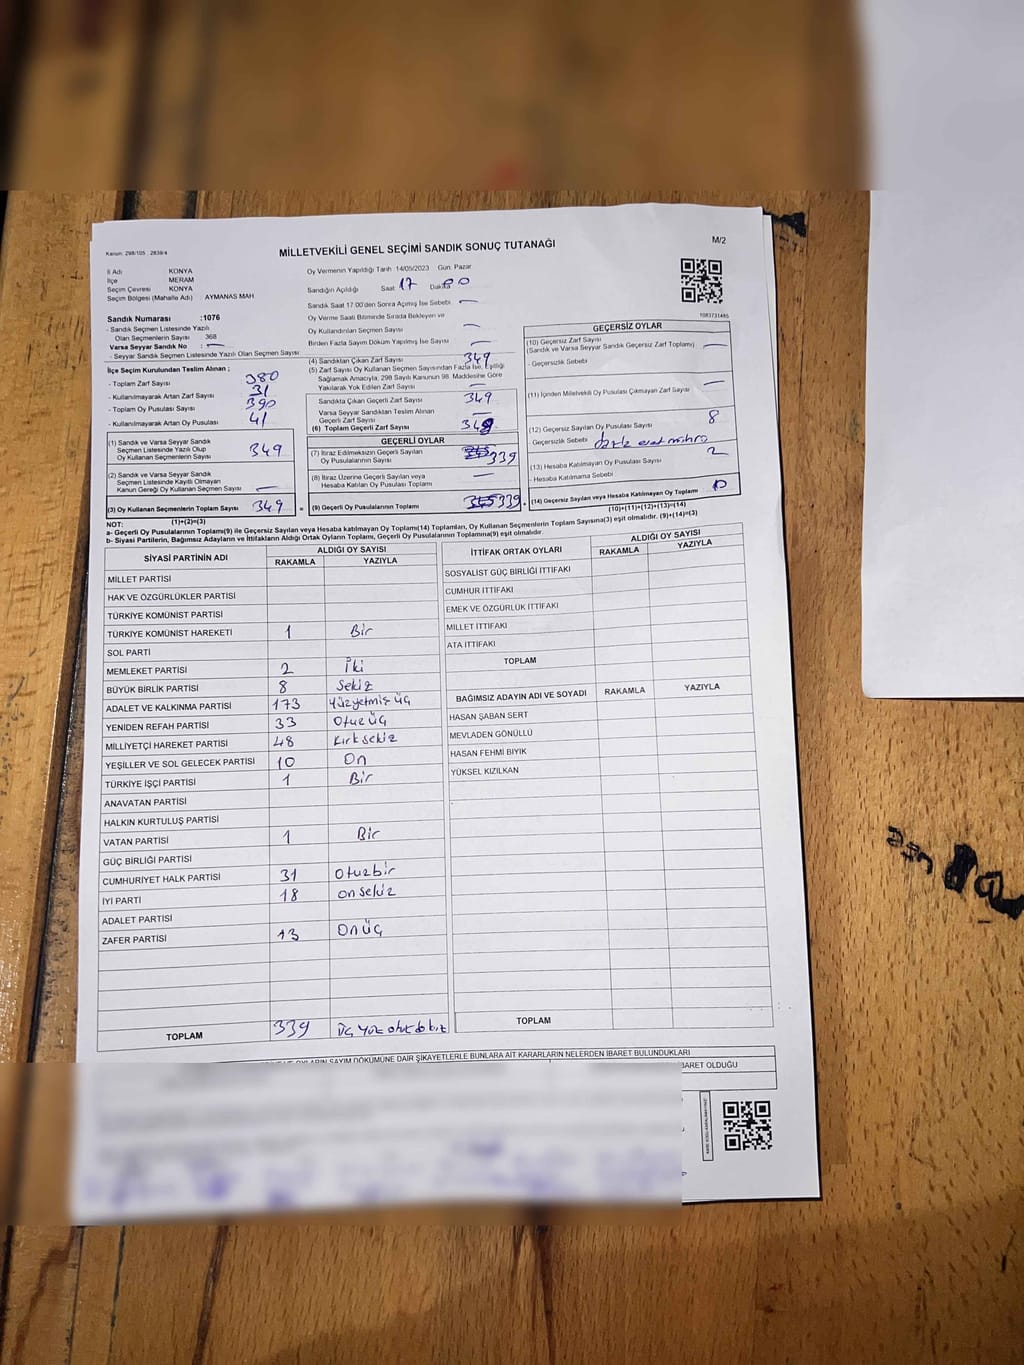 Kanun: 298/105 2839/4
MİLLETVEKİLİ GENEL SEÇİMİ SANDIK SONUÇ TUTANAĞI
M/2
İl Adı KONYA
İlçe MERAM
Seçim Çevresi KONYA
Seçim Bölgesi (Mahalle Adı) : AYMANAS MAH
Oy Vermenin Yapıldığı Tarih 14/05/2023 Gün: Pazar
Sandığın Açıldığı Saat 17 Dakika 00
Sandık Saat 17.00'den Sonra Açılmış İse Sebebi —
Oy Verme Saati Bitiminde Sırada Bekleyen ve
Oy Kullandırılan Seçmen Sayısı —
Birden Fazla Sayım Döküm Yapılmış İse Sayısı —
1083731485
Sandık Numarası :1076
- Sandık Seçmen Listesinde Yazılı
Olan Seçmenlerin Sayısı 368
Varsa Seyyar Sandık No : —
- Seyyar Sandık Seçmen Listesinde Yazılı Olan Seçmen Sayısı
İlçe Seçim Kurulundan Teslim Alınan ;
- Toplam Zarf Sayısı 380
- Kullanılmayarak Artan Zarf Sayısı 31
- Toplam Oy Pusulası Sayısı 390
- Kullanılmayarak Artan Oy Pusulası 41
(1) Sandık ve Varsa Seyyar Sandık
Seçmen Listesinde Yazılı Olup
Oy Kullanan Seçmenlerin Sayısı 349
(2) Sandık ve Varsa Seyyar Sandık
Seçmen Listesinde Kayıtlı Olmayan
Kanun Gereği Oy Kullanan Seçmen Sayısı —
(3) Oy Kullanan Seçmenlerin Toplam Sayısı 349
(1)+(2)=(3)
(4) Sandıktan Çıkan Zarf Sayısı 349
(5) Zarf Sayısı Oy Kullanan Seçmen Sayısından Fazla İse, Eşitliği
Sağlamak Amacıyla, 298 Sayılı Kanunun 98. Maddesine Göre
Yakılarak Yok Edilen Zarf Sayısı —
Sandıkta Çıkan Geçerli Zarf Sayısı 349
Varsa Seyyar Sandıktan Teslim Alınan
Geçerli Zarf Sayısı —
(6) Toplam Geçerli Zarf Sayısı 349
GEÇERLİ OYLAR
(7) İtiraz Edilmeksizin Geçerli Sayılan
Oy Pusulalarının Sayısı 339
(8) İtiraz Üzerine Geçerli Sayılan veya
Hesaba Katılan Oy Pusulası Toplamı —
= (9) Geçerli Oy Pusulalarının Toplamı 345 339 +
GEÇERSİZ OYLAR
(10) Geçersiz Zarf Sayısı
(Sandık ve Varsa Seyyar Sandık Geçersiz Zarf Toplamı) —
- Geçersizlik Sebebi
(11) İçinden Milletvekili Oy Pusulası Çıkmayan Zarf Sayısı —
(12) Geçersiz Sayılan Oy Pusulası Sayısı 8
- Geçersizlik Sebebi
(13) Hesaba Katılmayan Oy Pusulası Sayısı 2
- Hesaba Katılmama Sebebi
(14) Geçersiz Sayılan veya Hesaba Katılmayan Oy Toplamı
(10)+(11)+(12)+(13)=(14)
NOT:
a- Geçerli Oy Pusulalarının Toplamı(9) ile Geçersiz Sayılan veya Hesaba katılmayan Oy Toplamı(14) Toplamları, Oy Kullanan Seçmenlerin Toplam Sayısına(3) eşit olmalıdır. (9)+(14)=(3)
b- Siyasi Partilerin, Bağımsız Adayların ve İttifakların Aldığı Ortak Oyların Toplamı, Geçerli Oy Pusulalarının Toplamına(9) eşit olmalıdır.
SİYASİ PARTİNİN ADI ALDIĞI OY SAYISI
RAKAMLA YAZIYLA
MİLLET PARTİSİ
HAK VE ÖZGÜRLÜKLER PARTİSİ
TÜRKİYE KOMÜNİST PARTİSİ
TÜRKİYE KOMÜNİST HAREKETİ 1 Bir
SOL PARTİ
MEMLEKET PARTİSİ 2 İki
BÜYÜK BİRLİK PARTİSİ 8 Sekiz
ADALET VE KALKINMA PARTİSİ 173 Yüzyetmiş üç
YENİDEN REFAH PARTİSİ 33 Otuz üç
MİLLİYETÇİ HAREKET PARTİSİ 48 Kırk sekiz
YEŞİLLER VE SOL GELECEK PARTİSİ 10 On
TÜRKİYE İŞÇİ PARTİSİ 1 Bir
ANAVATAN PARTİSİ
HALKIN KURTULUŞ PARTİSİ
VATAN PARTİSİ 1 Bir
GÜÇ BİRLİĞİ PARTİSİ
CUMHURİYET HALK PARTİSİ 31 Otuzbir
İYİ PARTİ 18 On sekiz
ADALET PARTİSİ
ZAFER PARTİSİ 13 On üç
TOPLAM 339 üç yüz otuz dokuz
İTTİFAK ORTAK OYLARI ALDIĞI OY SAYISI
RAKAMLA YAZIYLA
SOSYALİST GÜÇ BİRLİĞİ İTTİFAKI
CUMHUR İTTİFAKI
EMEK VE ÖZGÜRLÜK İTTİFAKI
MİLLET İTTİFAKI
ATA İTTİFAKI
TOPLAM
BAĞIMSIZ ADAYIN ADI VE SOYADI RAKAMLA YAZIYLA
HASAN ŞABAN SERT
MEVLADEN GÖNÜLLÜ
HASAN FEHMİ BIYIK
YÜKSEL KIZILKAN
TOPLAM
OYLARIN SAYIM DÖKÜMÜNE DAİR ŞİKAYETLERLE BUNLARA AİT KARARLARIN NELERDEN İBARET BULUNDUKLARI
İBARET OLDUĞU